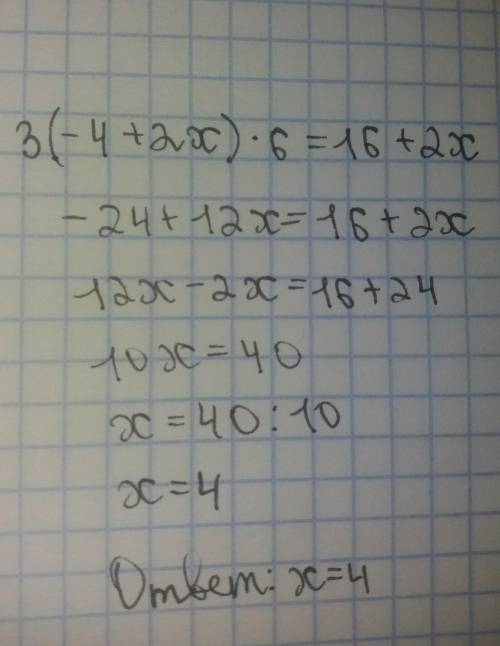 3(-4+2x)·6=16+2x
-24+12x=16+2x
12x-2x=16+24
10x=40
x=40:10
x=4
Ответ: x=4